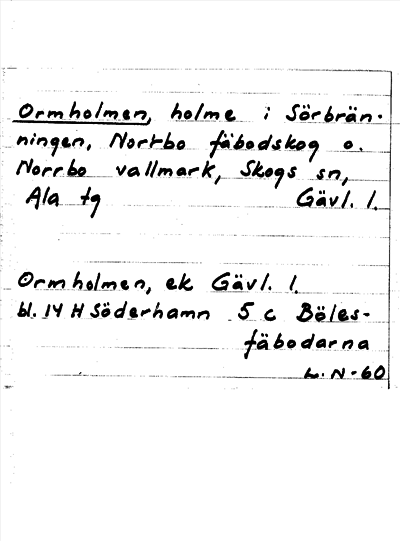 Ormholmen, holme i Sörbrän-
ningen, Norrbo fäbodskog o.
Norrbo vallmark, Skogs sn,
Ala tg Gävl. l.
Ormholmen, ek Gävl. l.
bl. 14 H Söderhamn 5 c Böles-
fäbodarna
L. N-60